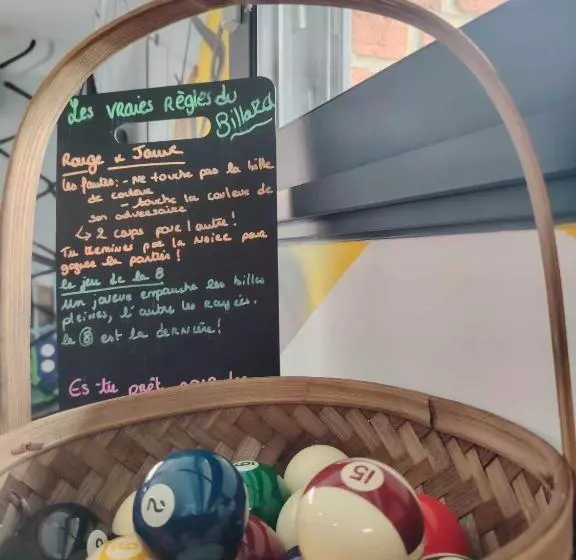 Les vraies Règles du
Billard
Rouge & Jaune
les fautes: - ne touche pas la bille
de couleur
- touche la couleur de
son adversaire
↳ 2 coups pour l'autre!
Tu termines par la Noire pour
gagner la parties!
le jeu de la 8
Un joueur empauche les billes
pleines, l'autre les rayées.
la 8 est la dernière!
Es-tu prêt
2
15